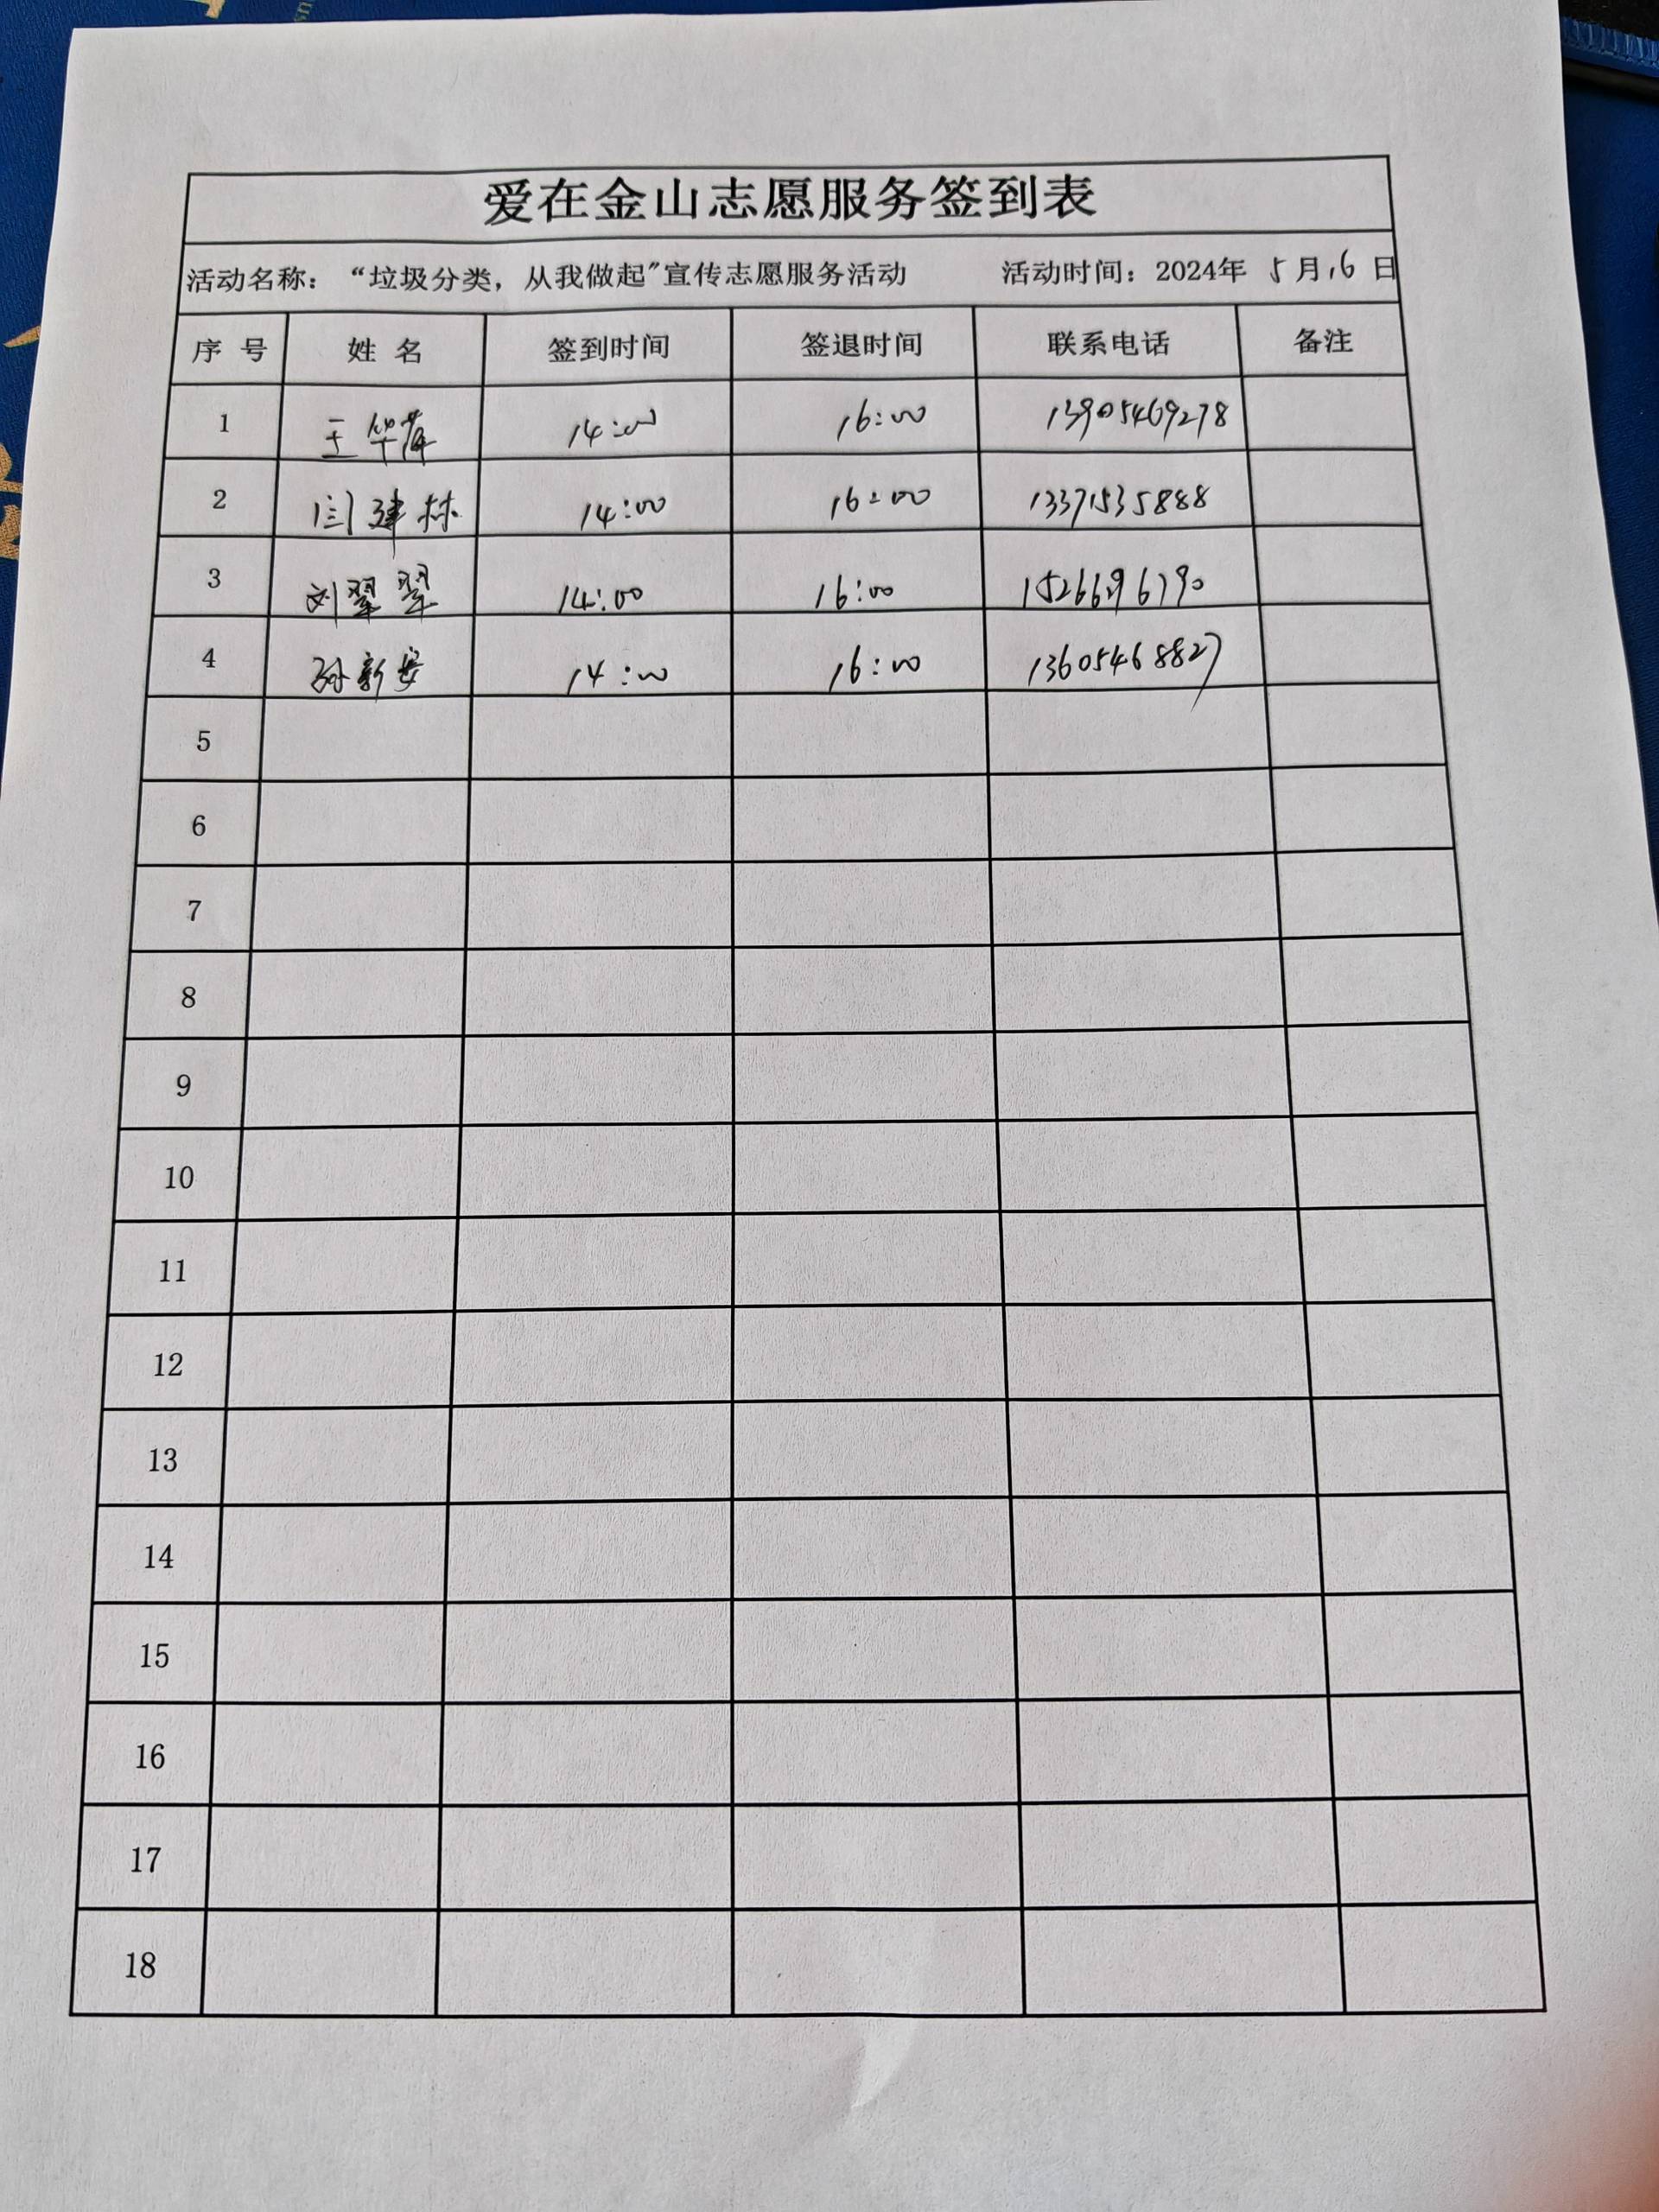 爱在金山志愿服务签到表
活动名称：“垃圾分类，从我做起”宣传志愿服务活动 活动时间：2024年 5月16日
序号 姓名 签到时间 签退时间 联系电话 备注
1 王华 14:00 16:00 13905469278
2 闫建林 14:00 16:00 13371535888
3 刘翠翠 14:00 16:00 15266296790
4 孙新安 14:00 16:00 13605468827
5
6
7
8
9
10
11
12
13
14
15
16
17
18